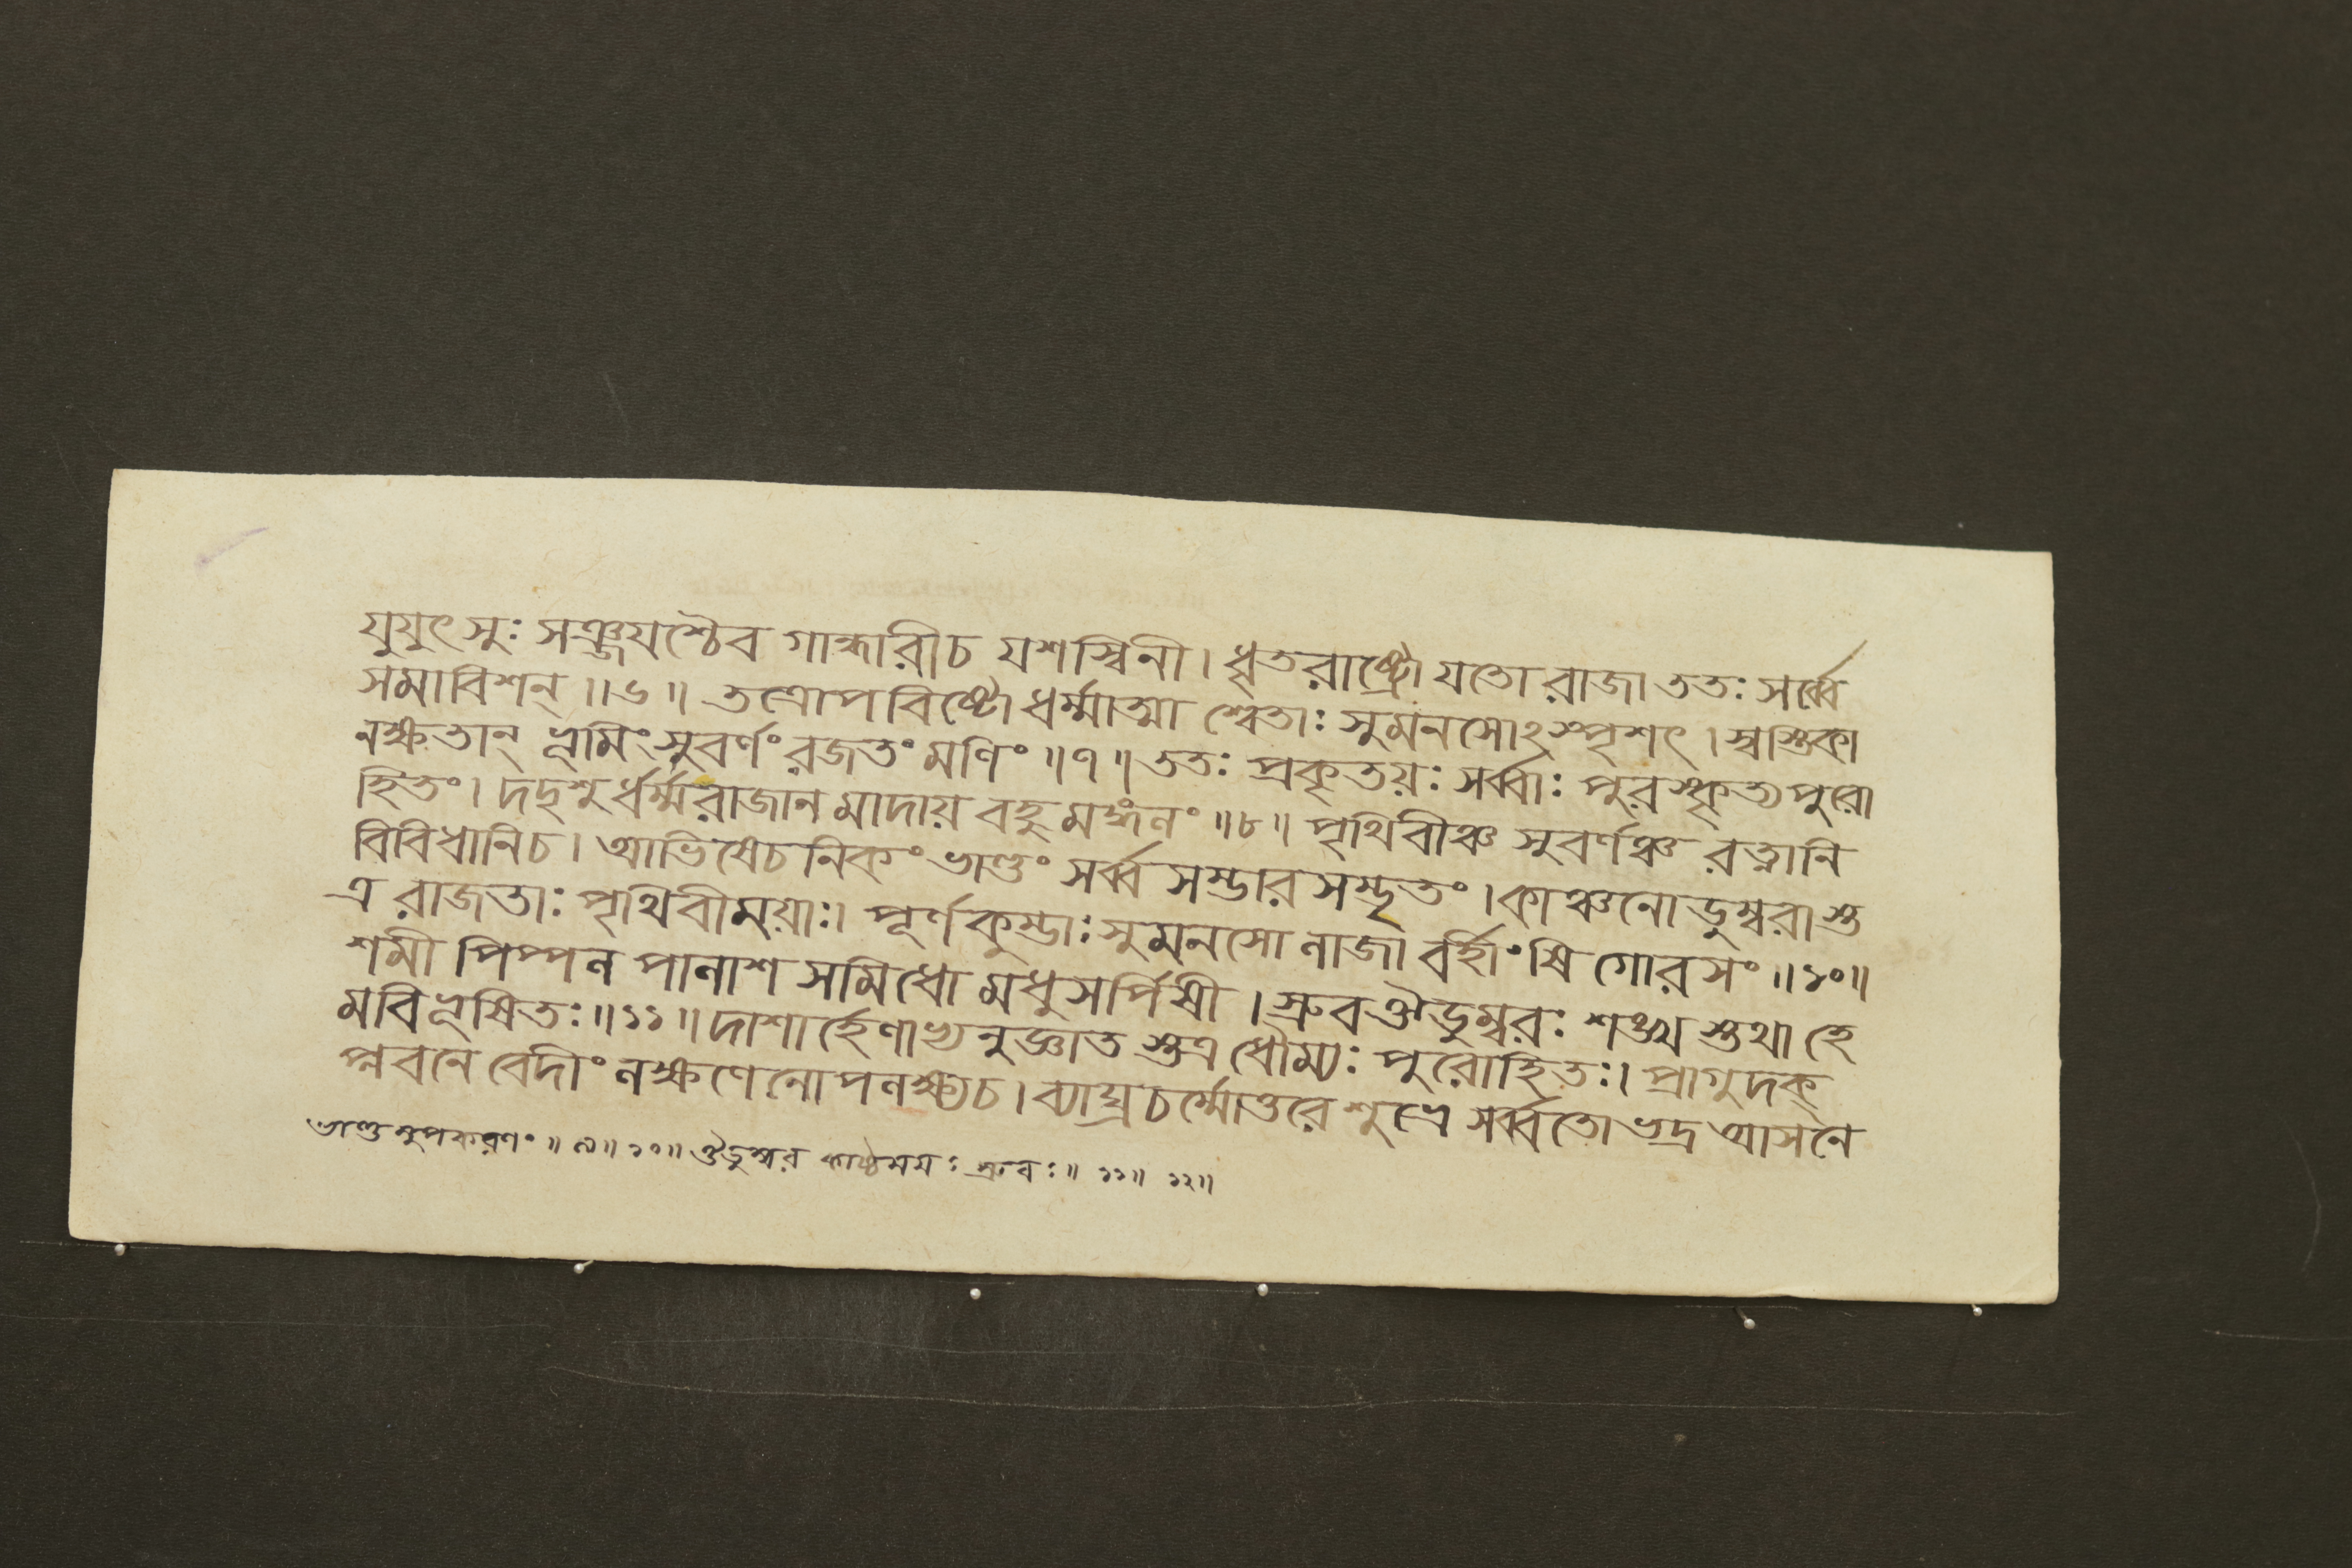 যুযুৎসুঃ সঞ্জয়শ্চৈব গান্ধারীচ যশস্বিনী। ধৃতরাষ্ট্রো যতো রাজা ততঃ সর্ব্বে
সমাবিশন্॥৬॥ তত্রোপবিষ্টো ধর্ম্মাত্মা শ্বেতাঃ সুমনসোঽস্পৃশৎ। স্বস্তিকা
নক্ষতান্ ভূমিং সুবর্ণং রজতং মণিং॥৭॥ ততঃ প্রকৃতয়ঃ সর্ব্বাঃ পুরস্কৃত্য পুরো
হিতং। দদৃশুর্ধর্ম্মরাজান মাদায় বহুমঙ্গলং॥৮॥ পৃথিবীঞ্চ সুবর্ণঞ্চ রত্নানি
বিবিধানিচ। আভিষেচনিকং ভাণ্ডং সর্ব্বসম্ভারসম্ভৃতং। কাঞ্চনোডুম্বরাস্ত
ত্র রাজতাঃ পৃথিবীময়াঃ। পূর্ণকুম্ভাঃ সুমনসো লাজা বর্হীংষি গোরসং॥১০॥
শমী পিপ্পল পালাশ সমিধো মধুসর্পিষী। স্রুব ঔডুম্বরঃ শঙ্খ স্তথা হে
মবিভূষিতঃ॥১১॥ দাশার্হেণাভ্যনুজ্ঞাত স্তত্র ধৌম্যঃ পুরোহিতঃ। প্রাগুদক্
প্লবনে বেদীং লক্ষণেনোপলক্ষ্যচ। ব্যাঘ্রচর্ম্মোত্তরে শুভ্রে সর্ব্বতোভদ্র আসনে
ভাণ্ডমুপকরণং॥৯॥১০॥ ঔডুম্বর কাষ্ঠময়ঃ স্রুবঃ॥১১॥ ১২॥